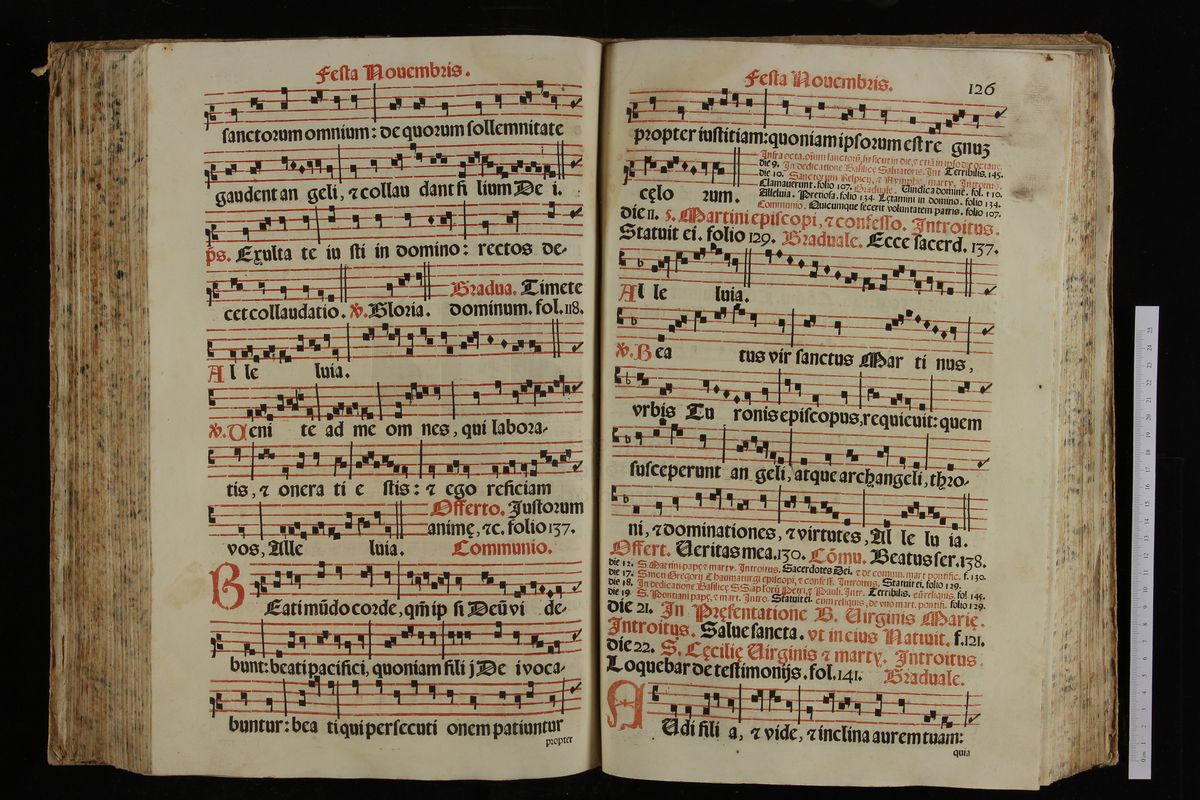 Festa Nouembris.
sanctorum omnium: de quorum sollemnitate
gaudent an geli, ⁊ collau dant fi lium De i.
ps. Exulta te iu sti in domino: rectos de-
Gradua. Timete
cet collaudatio. ℣. Gloria. dominum. fol. 118.
Al le luia.
℣. Ueni te ad me om nes, qui labora-
tis, ⁊ onera ti e stis: ⁊ ego reficiam
Offerto. Justorum
animę, ⁊c. folio 137.
vos, Alle luia. Communio.
BEati mūdo corde, qm̄ ip si Deū vi de-
bunt: beati pacifici, quoniam fili j De i voca-
buntur: bea ti qui persecuti onem patiuntur
propter
Festa Nouembris. 126
propter iustitiam: quoniam ipsorum est re gnuꝫ
Infra octa. oium sanctorū, fit sicut in die, ⁊ etiā in ipso die octauę.
die 9. In dedicatione Basilicę Saluatoris. Int. Terribilis. 145.
die 10. Sanctorum Respicij, ⁊ Nymphę, marty. Introitus.
Clamauerunt. folio 107. Graduale. Uindica domine. fol. 110.
Alleluia. Pretiosa. folio 134. Lętamini in domino. folio 134.
Communio. Quicumque fecerit voluntatem patris. folio 107.
cęlo rum.
die 11. S. Martini episcopi, ⁊ confesso. Introitus.
Statuit ei. folio 129. Graduale. Ecce sacerd. 137.
Al le luia.
℣. Bea tus vir sanctus Mar ti nus,
vrbis Tu ronis episcopus, requieuit: quem
susceperunt an geli, atque archangeli, thro-
ni, ⁊ dominationes, ⁊ virtutes, Al le lu ia.
Offert. Ueritas mea. 130. Cōmu. Beatus ser. 138.
die 12. S. Martini papę ⁊ marty. Introitus. Sacerdotes Dei. ⁊ de commu. mart. pontific. f. 130.
die 17. Sancti Gregorij Thaumaturgi episcopi, ⁊ confess. Introitus. Statuit ei. folio 129.
die 18. In dedicatione Basilicę SS. apostorū Petri, ⁊ Pauli. Intr. Terribilis. cū reliquis. fol. 145.
die 19 S. Pontiani papę, ⁊ mart. Intro. Statuit ei. cum reliquis, de vno mart. pontifi. folio 129.
die 21. In Pręsentatione B. Uirginis Marię.
Introitus. Salue sancta. vt in eius Natiuit. f. 121.
die 22. S. Cęcilię Uirginis ⁊ marty. Introitus.
Loquebar de testimonijs. fol. 141. Graduale.
AUdi fili a, ⁊ vide, ⁊ inclina aurem tuam:
quia